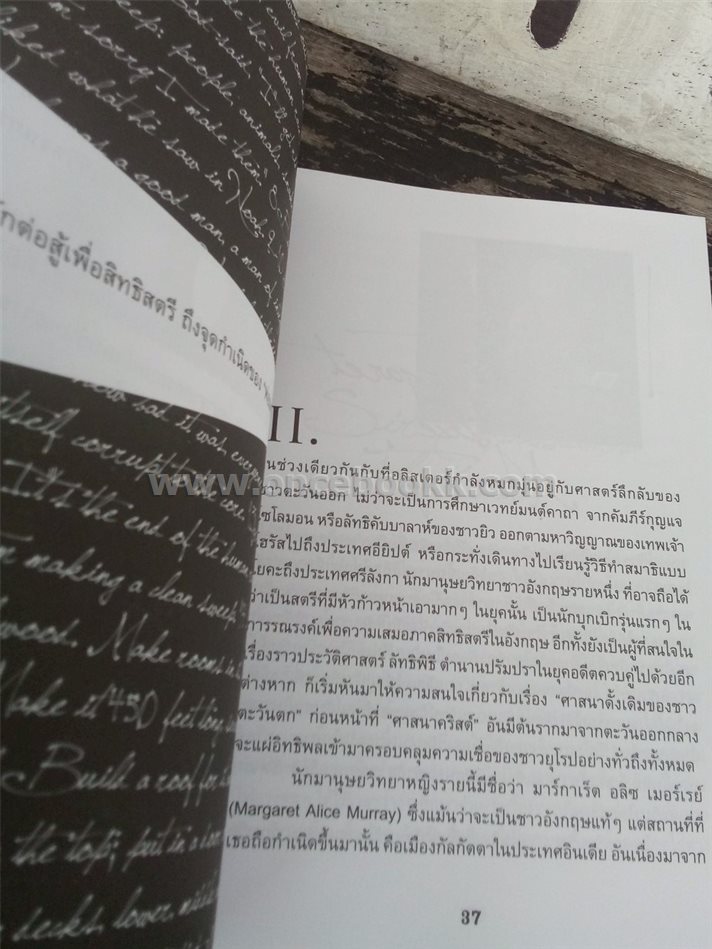 not said. I'll get
sorry I made them. But
liked what he saw in Noah
was a good man, a man of
กต่อสู้เพื่อสิทธิสตรี ถึงจุดกำเนิดของ
how bad it was, every
corrupt to the core
It's the end of the human
making a clean sweep
wood. Make rooms in
Make it 450 feet long
Build a roof for
the top; put in a
decks, lower, middle
II.
นช่วงเดียวกันกับที่อลิสเตอร์กำลังหมกมุ่นอยู่กับศาสตร์ลึกลับของ
าวตะวันออก ไม่ว่าจะเป็นการศึกษาเวทย์มนต์คาถา จากคัมภีร์กุญแจ
ซโลมอน หรือลัทธิคับบาลาห์ของชาวยิว ออกตามหาวิญญาณของเทพเจ้า
ฮรัสไปถึงประเทศอียิปต์ หรือกระทั่งเดินทางไปเรียนรู้วิธีทำสมาธิแบบ
โยคะถึงประเทศศรีลังกา นักมานุษยวิทยาชาวอังกฤษรายหนึ่ง ที่อาจถือได้
ว่าเป็นสตรีที่มีหัวก้าวหน้าเอามากๆ ในยุคนั้น เป็นนักบุกเบิกรุ่นแรกๆ ใน
การรณรงค์เพื่อความเสมอภาคสิทธิสตรีในอังกฤษ อีกทั้งยังเป็นผู้ที่สนใจใน
เรื่องราวประวัติศาสตร์ ลัทธิพิธี ตำนานปรัมปราในยุคอดีตควบคู่ไปด้วยอีก
ต่างหาก ก็เริ่มหันมาให้ความสนใจเกี่ยวกับเรื่อง “ศาสนาดั้งเดิมของชาว
ตะวันตก” ก่อนหน้าที่ “ศาสนาคริสต์” อันมีต้นรากมาจากตะวันออกกลาง
จะแผ่อิทธิพลเข้ามาครอบคลุมความเชื่อของชาวยุโรปอย่างทั่วถึงทั้งหมด
นักมานุษยวิทยาหญิงรายนี้มีชื่อว่า มาร์กาเร็ต อลิซ เมอร์เรย์
(Margaret Alice Murray) ซึ่งแม้นว่าจะเป็นชาวอังกฤษแท้ๆ แต่สถานที่ที่
เธอถือกำเนิดขึ้นมานั้น คือเมืองกัลกัตตาในประเทศอินเดีย อันเนื่องมาจาก
37